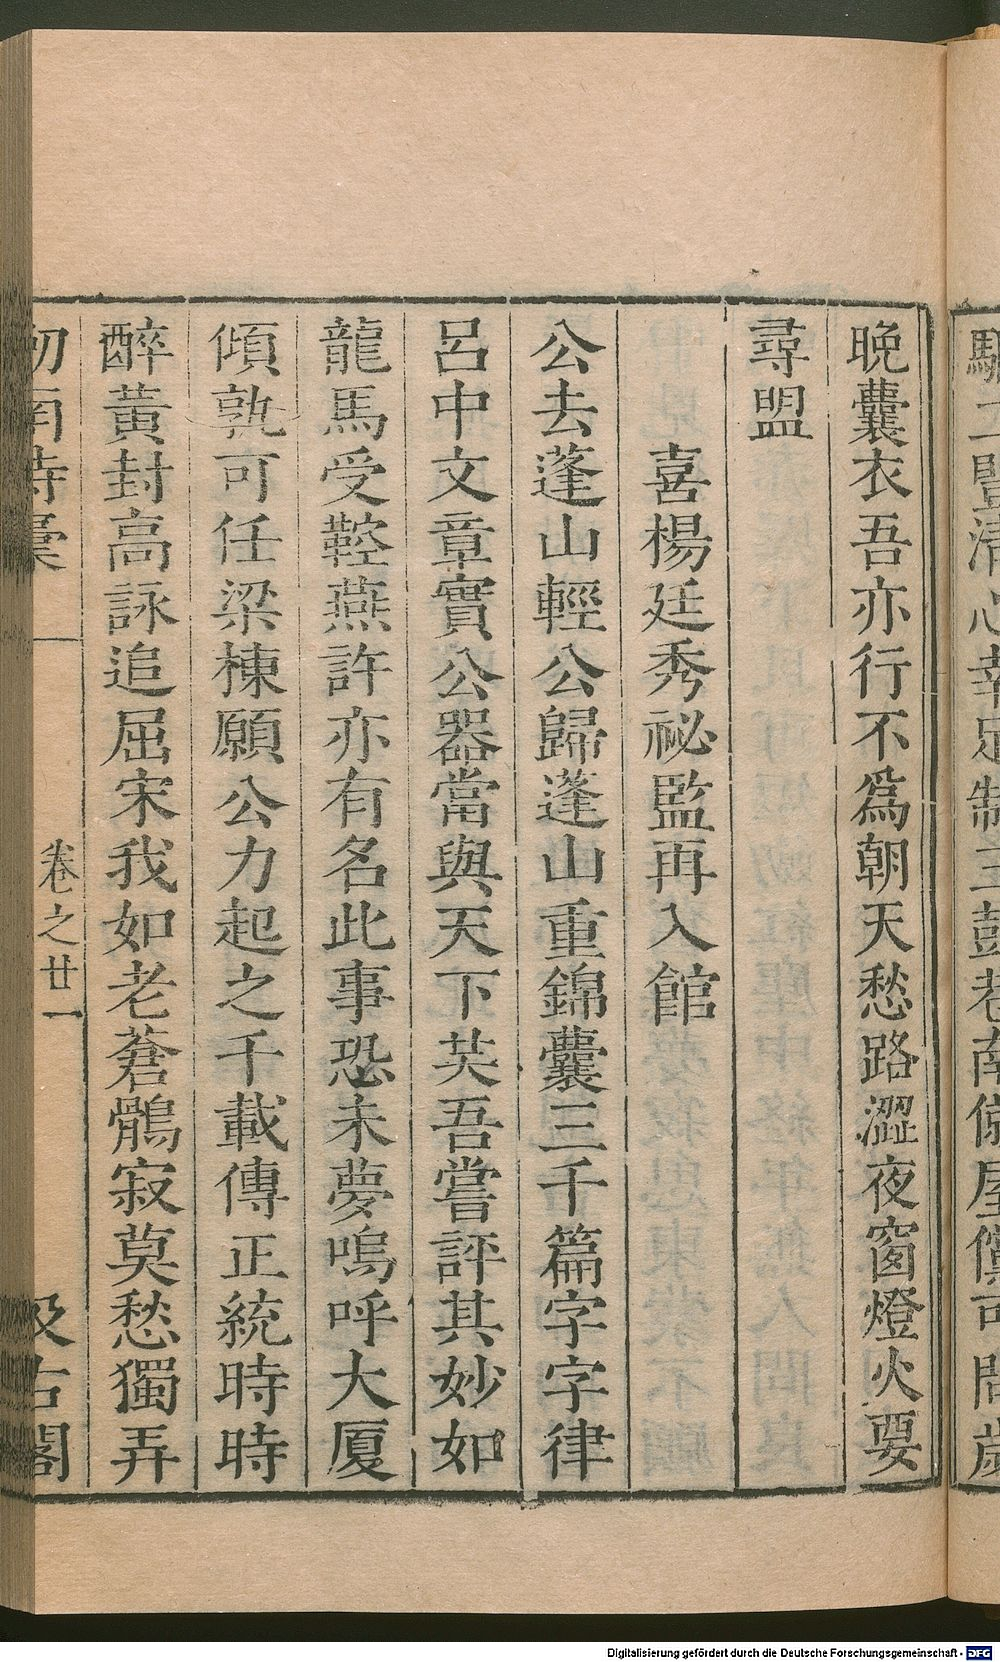 晚囊衣吾亦行不爲朝天愁路澀夜窗燈火要
尋盟
喜楊廷秀祕監再入館
公去蓬山輕公歸蓬山重錦囊三千篇字字律
呂中文章實公器當與天下共吾嘗評其妙如
龍馬受鞚燕許亦有名此事恐未夢嗚呼大厦
傾孰可任梁棟願公力起之千載傳正統時時
醉黃封高詠追屈宋我如老蒼鶻寂莫愁獨弄
卷之廿一
汲古閣
Digitalisierung gefördert durch die Deutsche Forschungsgemeinschaft - DFG